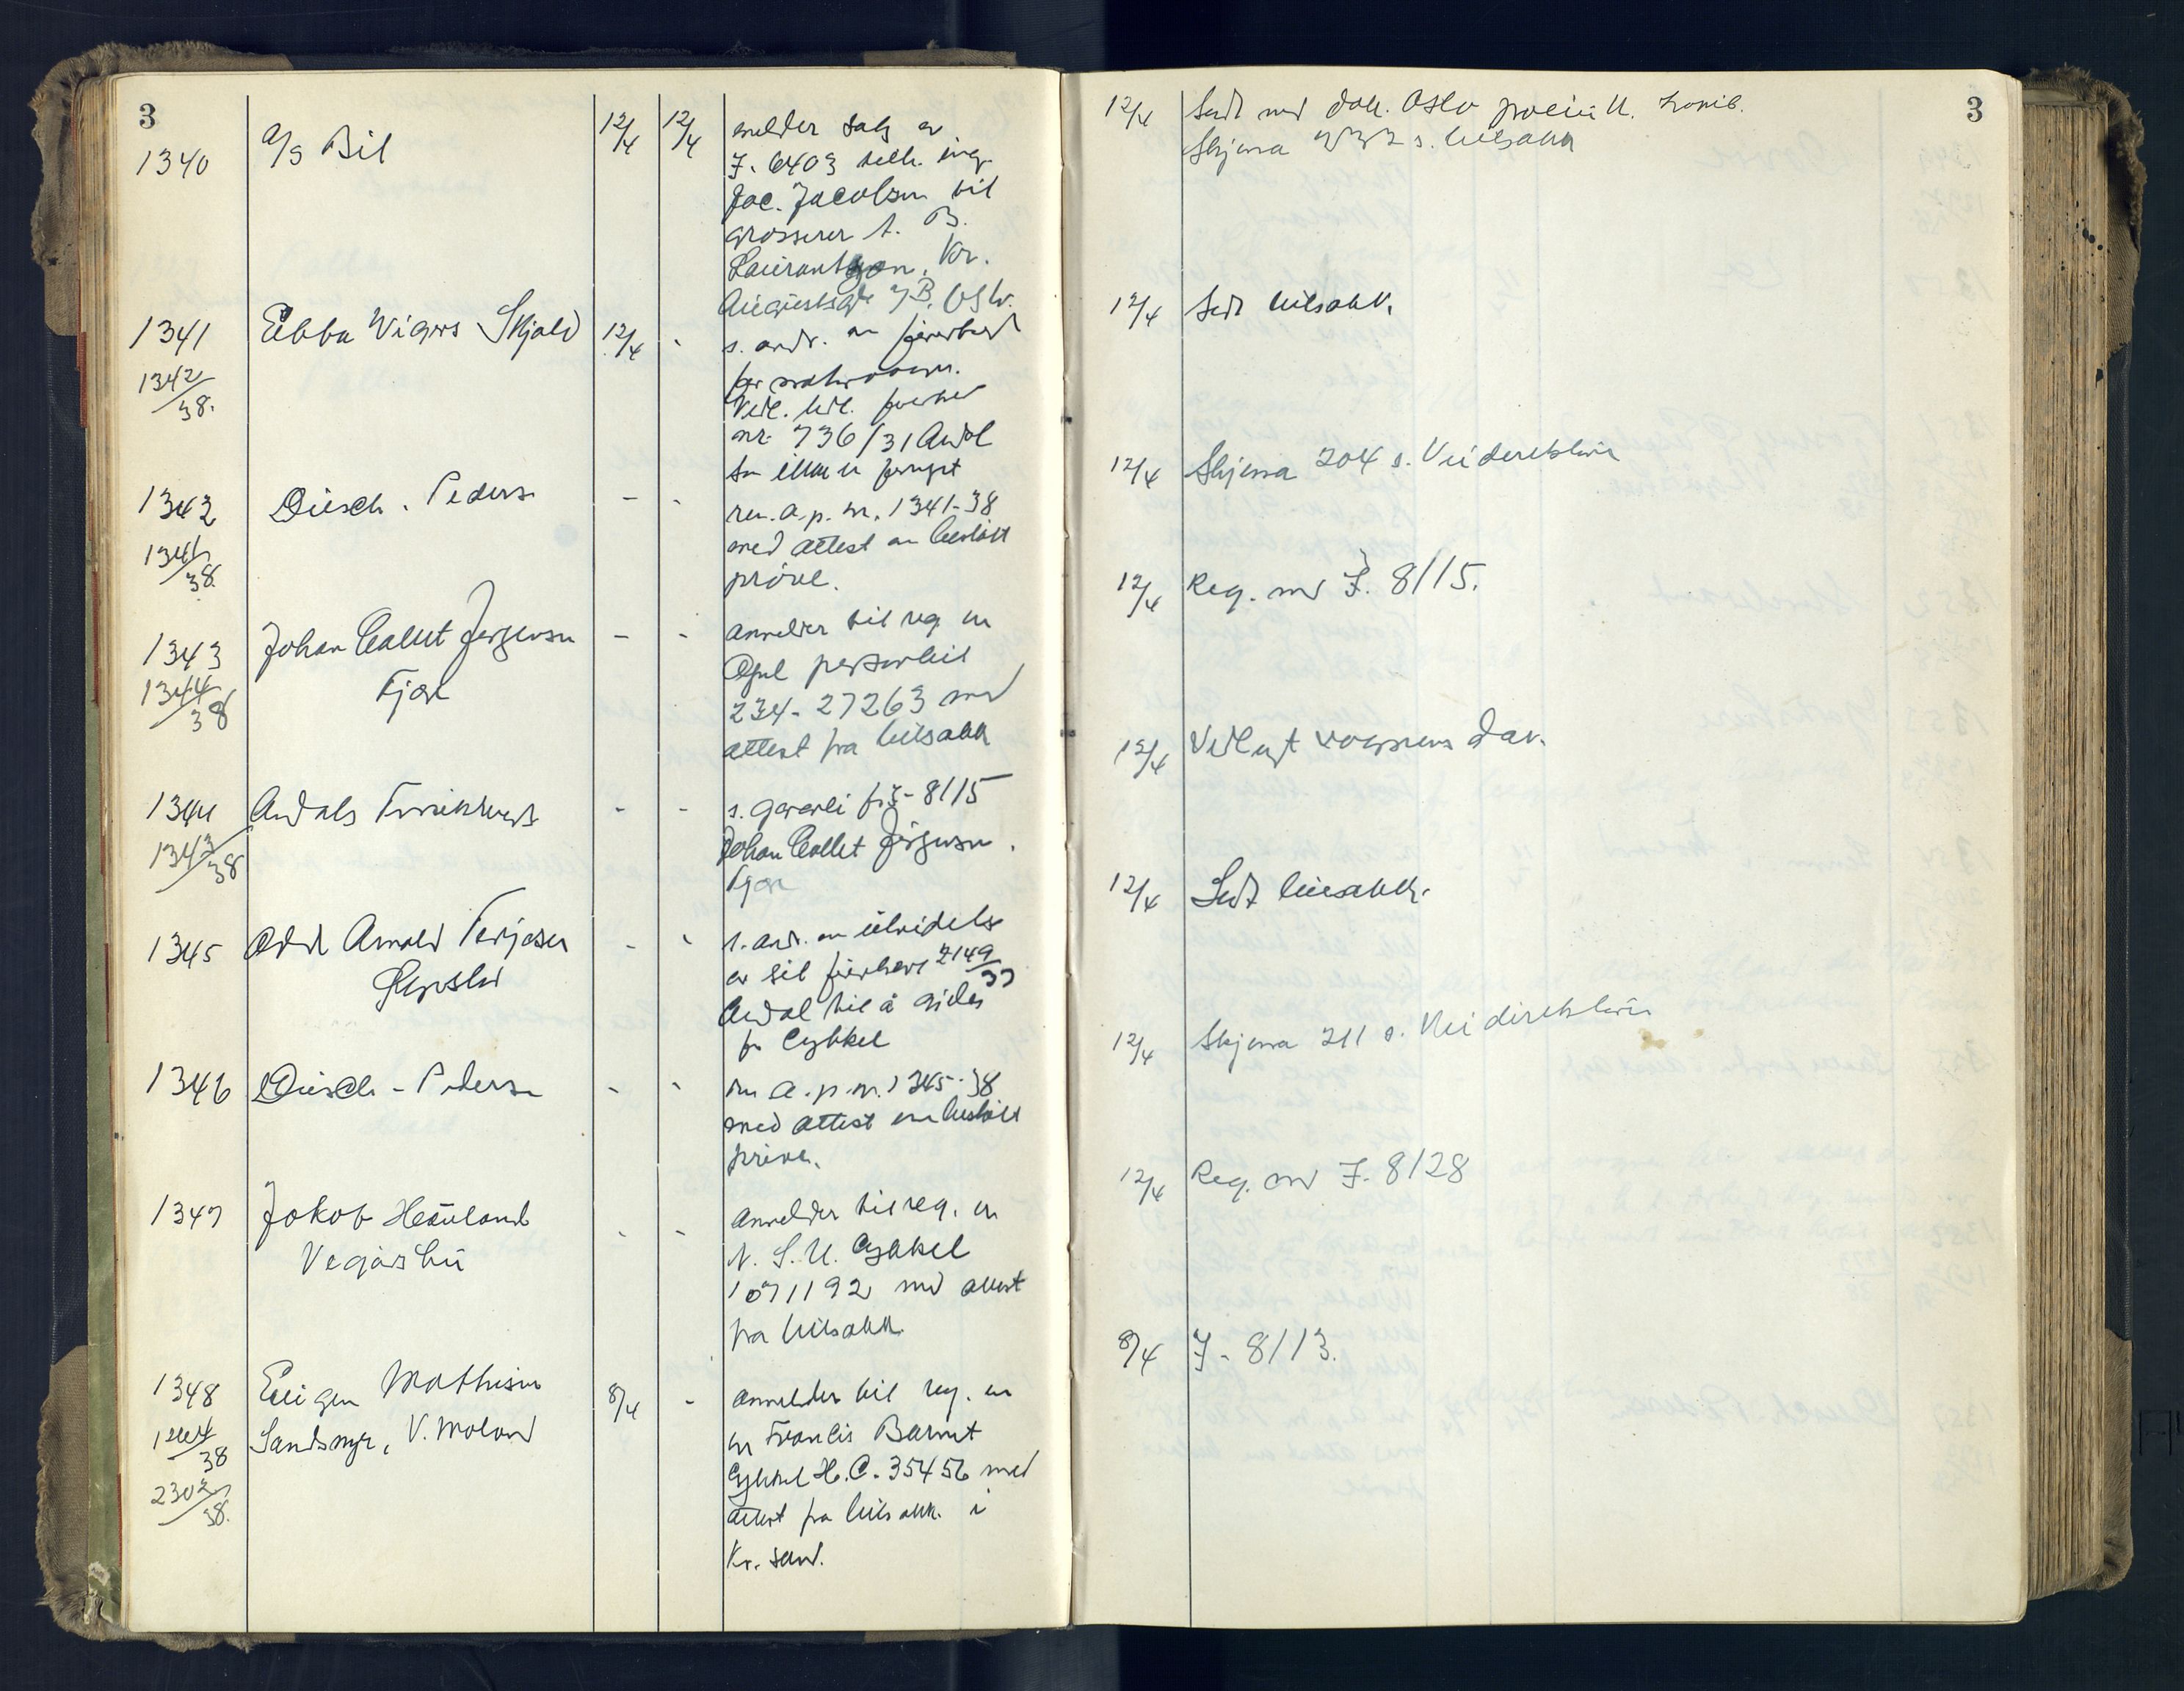 3
1340
A/S Bil
12/4
12/4
melder salg av
I. 6403 tilh. ing.
Jac. Jacobsen til
grosserer A. B.
Laurantzon, Kr.
Augustsgt 7B, Oslo.
1341
1342/38.
Ebba Wigers Skjold
12/4
-
s. ands. om førerbevis
for motorvogn.
Vedl. tidl. førerbevis
nr. 736/31 Awdl
som ikke er fornyet
1342
1341/38
Dusch. Peders.
-
-
ren. a. p. nr. 1341-38
med attest om bestått
prøve.
1343
1344/38
Johan Callet Jørgensen
Fjære
-
-
anmelder til reg. en
Opel personbil
234-27263 med
attest fra bilsakk
1344
1343/38
Awdals
-
-
s. garanti for I-8115
Johan Callet Jørgensen.
Fjære
1345
Odd Arnold Terjesen
-
-
s. ands. om utvidelse
av sit førerbevis 2149/37
Awdal til å gjelde
for Cykkel
1346
Dusch-Pedersen
-
-
ren a. p. nr. 1345-38
med attest om bestått
prøve.
1347
Jokob Hauland
Vegårshei
-
-
Anmelder til reg. en
N. S. U. Cykkel
1071192 med attest
fra bilsakk.
1348
1444/38
2302/38.
Eugen Mathisen
Sandsmyr, V. Moland
8/4
-
anmelder til reg. en
en Francis Barnet
Cykkel H.C. 35456 med
attest fra bilsakk. i
Kr. sand.
3
12/4 Sendt med dok. Oslo politik.
Skjema 232 s. bilsakk
12/4 Sendt bilsakk.
12/4 Skjema 204 s. Veidirektøren
12/4 Reg. med I. 8115.
12/4 Vedlagt vognens dok.
12/4 Sendt bilsakk.
12/4 Skjema 211 s. Veidirektøren
12/4 Reg. med I. 8128
8/4 I- 8113.